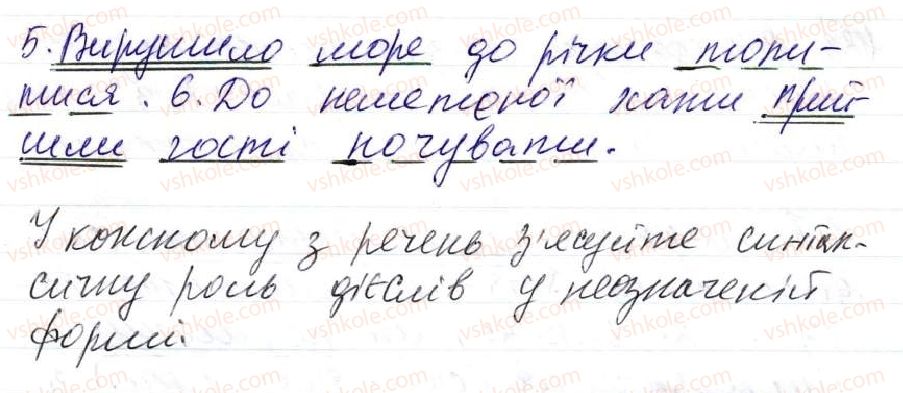 5. Вирушило море до річки топи-
тися. 6. До неметеної хати прий-
шли гості ночувати.
У кожному з речень з'ясуйте синтак-
сичну роль дієслів у неозначеній
формі.